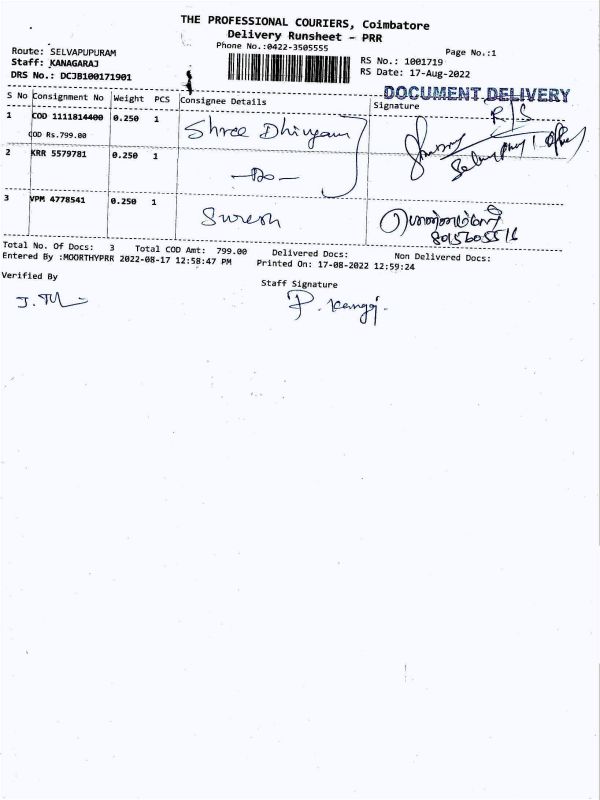 THE PROFESSIONAL COURIERS, Coimbatore
Delivery Runsheet - PRR
Phone No.:0422-3505555
Page No.:1
Route: SELVAPUPURAM
Staff: KANAGARAJ
DRS No.: DCJB100171901
RS No.: 1001719
RS Date: 17-Aug-2022
DOCUMENT DELIVERY
S No Consignment No Weight PCS Consignee Details Signature
R/S
1 COD 1111814400 0.250 1 Shree Dhivyam
COD Rs.799.00
2 KRR 5579781 0.250 1 -Do-
3 VPM 4778541 0.250 1 Suresh
8015605516
Total No. Of Docs: 3 Total COD Amt: 799.00 Delivered Docs: Non Delivered Docs:
Entered By :MOORTHYPRR 2022-08-17 12:58:47 PM Printed On: 17-08-2022 12:59:24
Verified By
Staff Signature